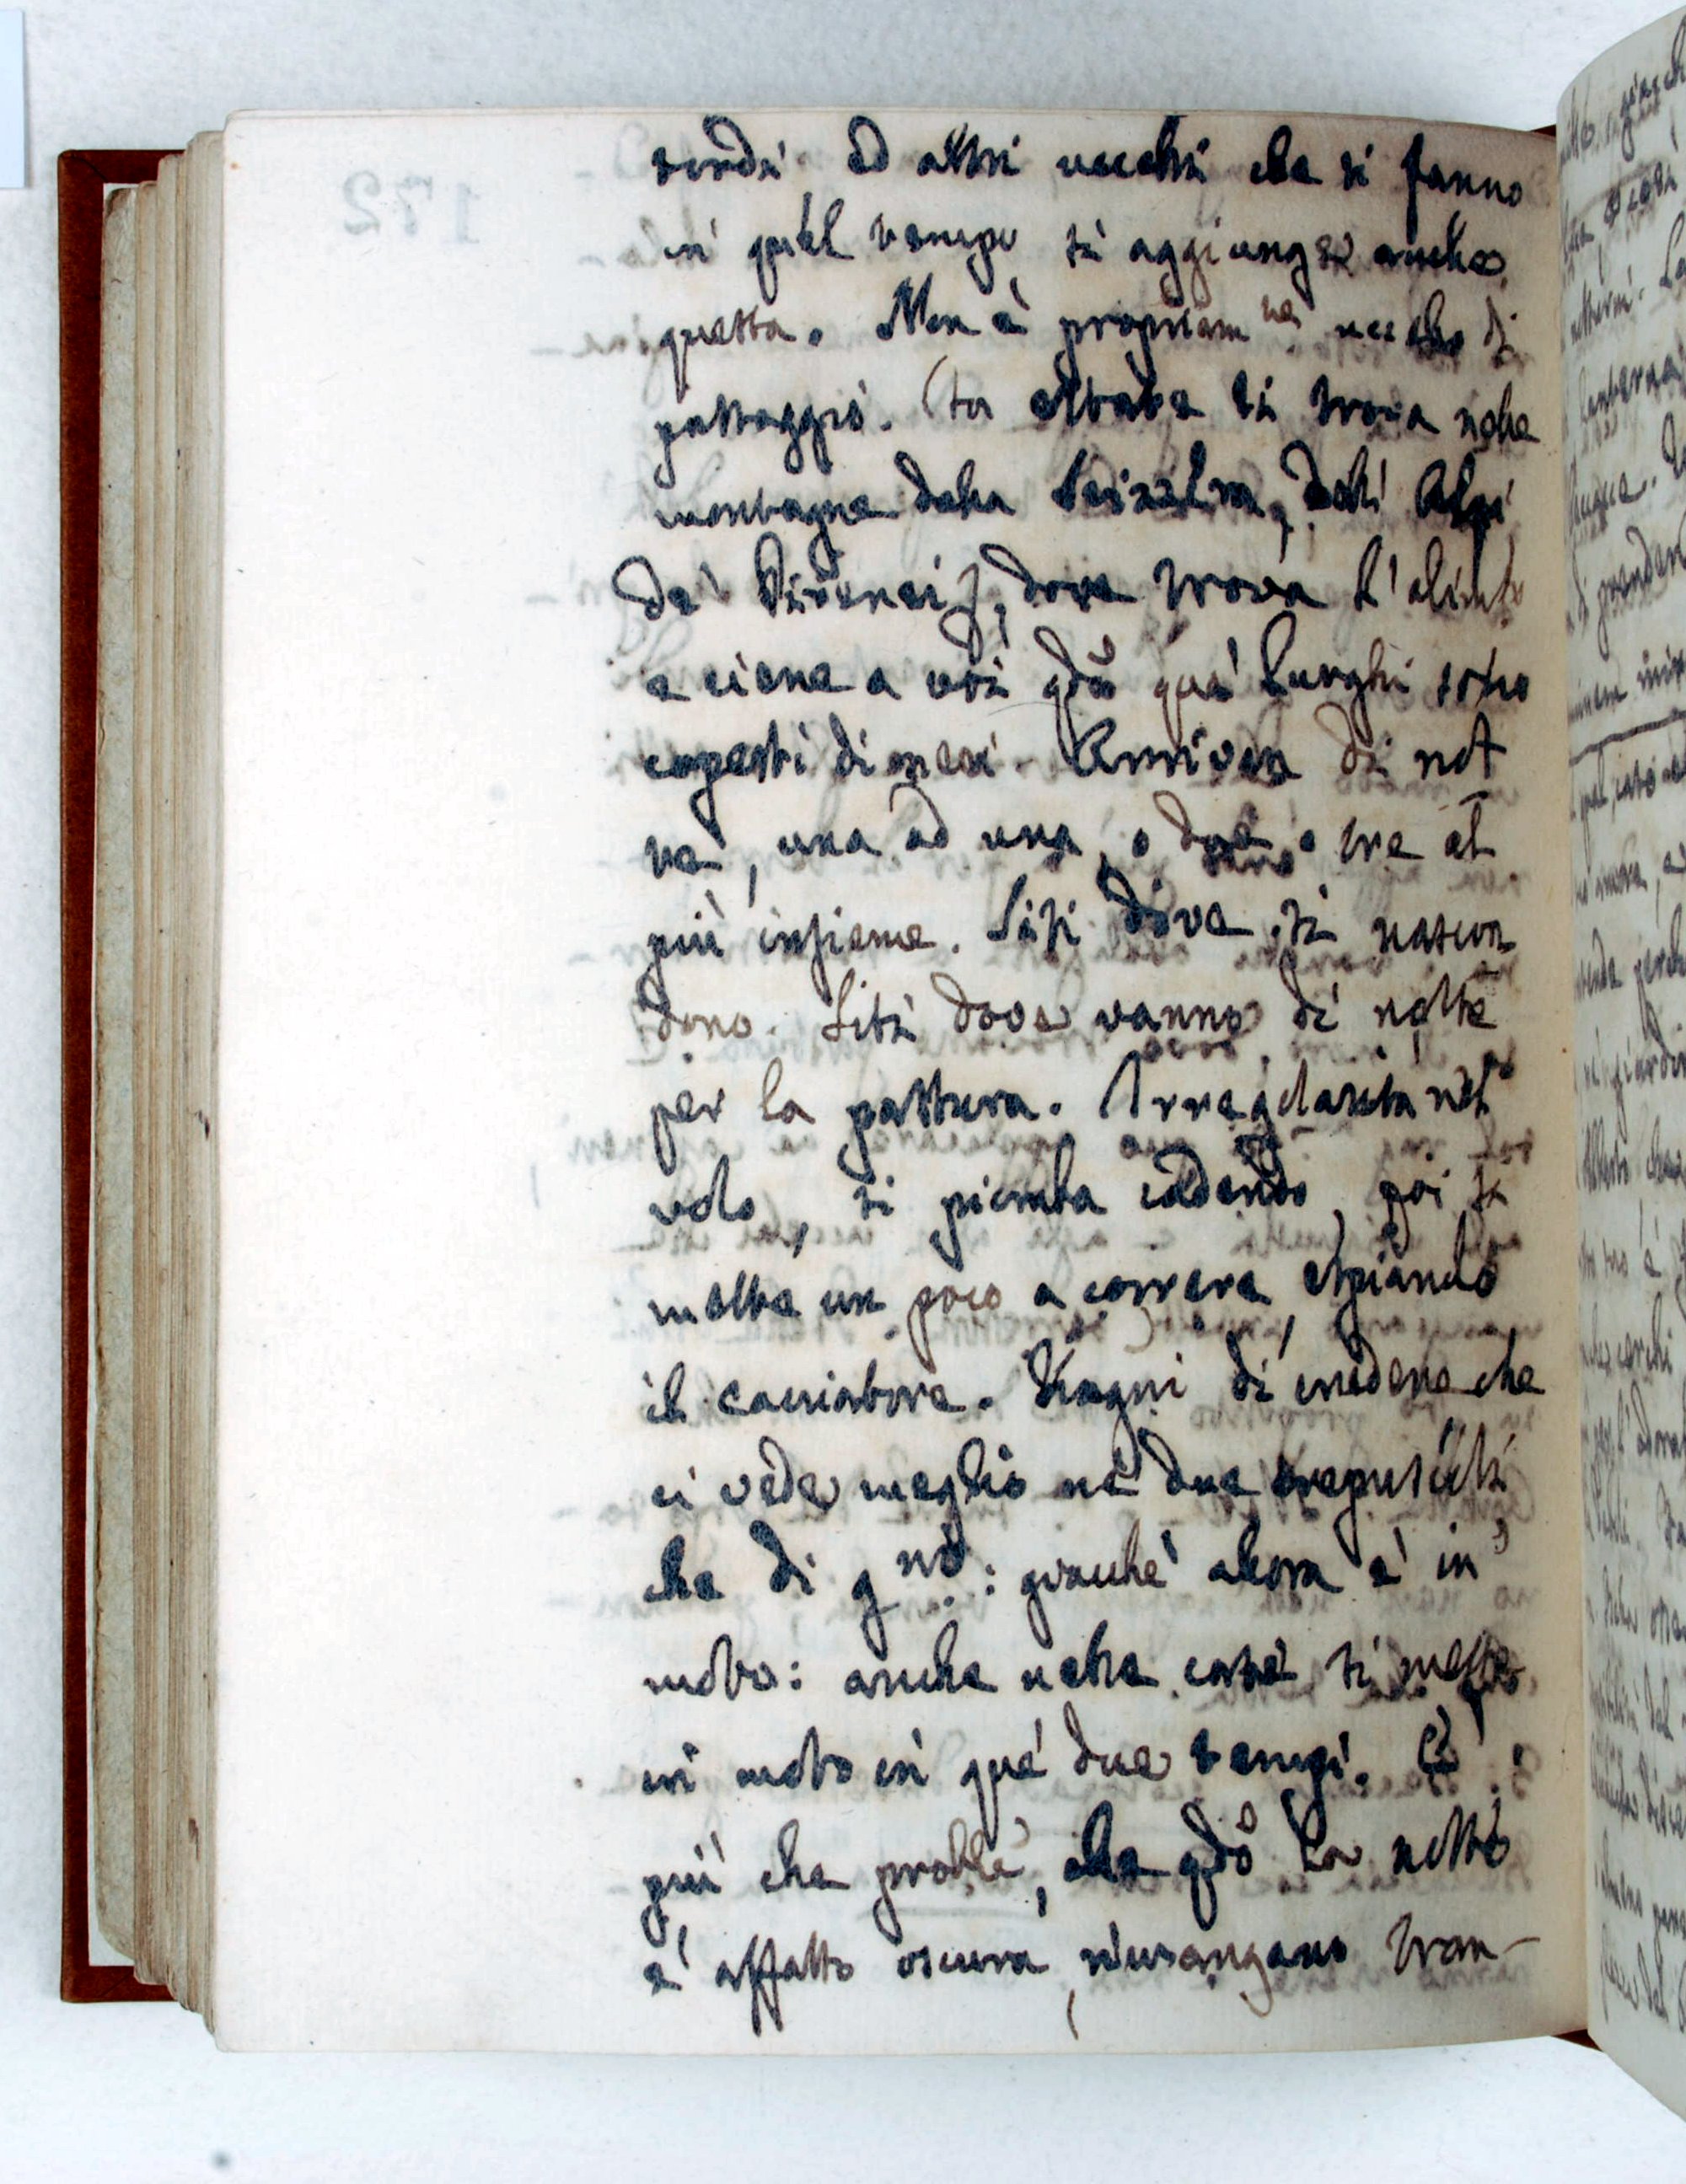 tordi ed altri uccelli che si fanno
in quel tempo si aggiunge anche
questa. Non è propriam te uccello di
passaggio. (La estate si trova nelle
montagne della Svizzera, delli Alpi
de' Pirenei), dove trova l'alimto
e viene a noi qdo que' luoghi sono
coperti di nevi. Arrivan di not
te, una ad una, o due o tre al
più insieme. Siti dove si nascon
dono. Siti dove vanno di notte
per la pastura. Irregolarità nel
volo, si piomba cadendo, poi si
mette un poco a correre, spiando
il cacciatore. Segni di credere che
ci vede meglio ne' due crepuscoli
che di gno: giacchè allora è in
moto: anche nelle case si mette
in moto in que' due tempi. È
più che proble, che qdo la notte
è affatto oscura, rimangano tran-
172